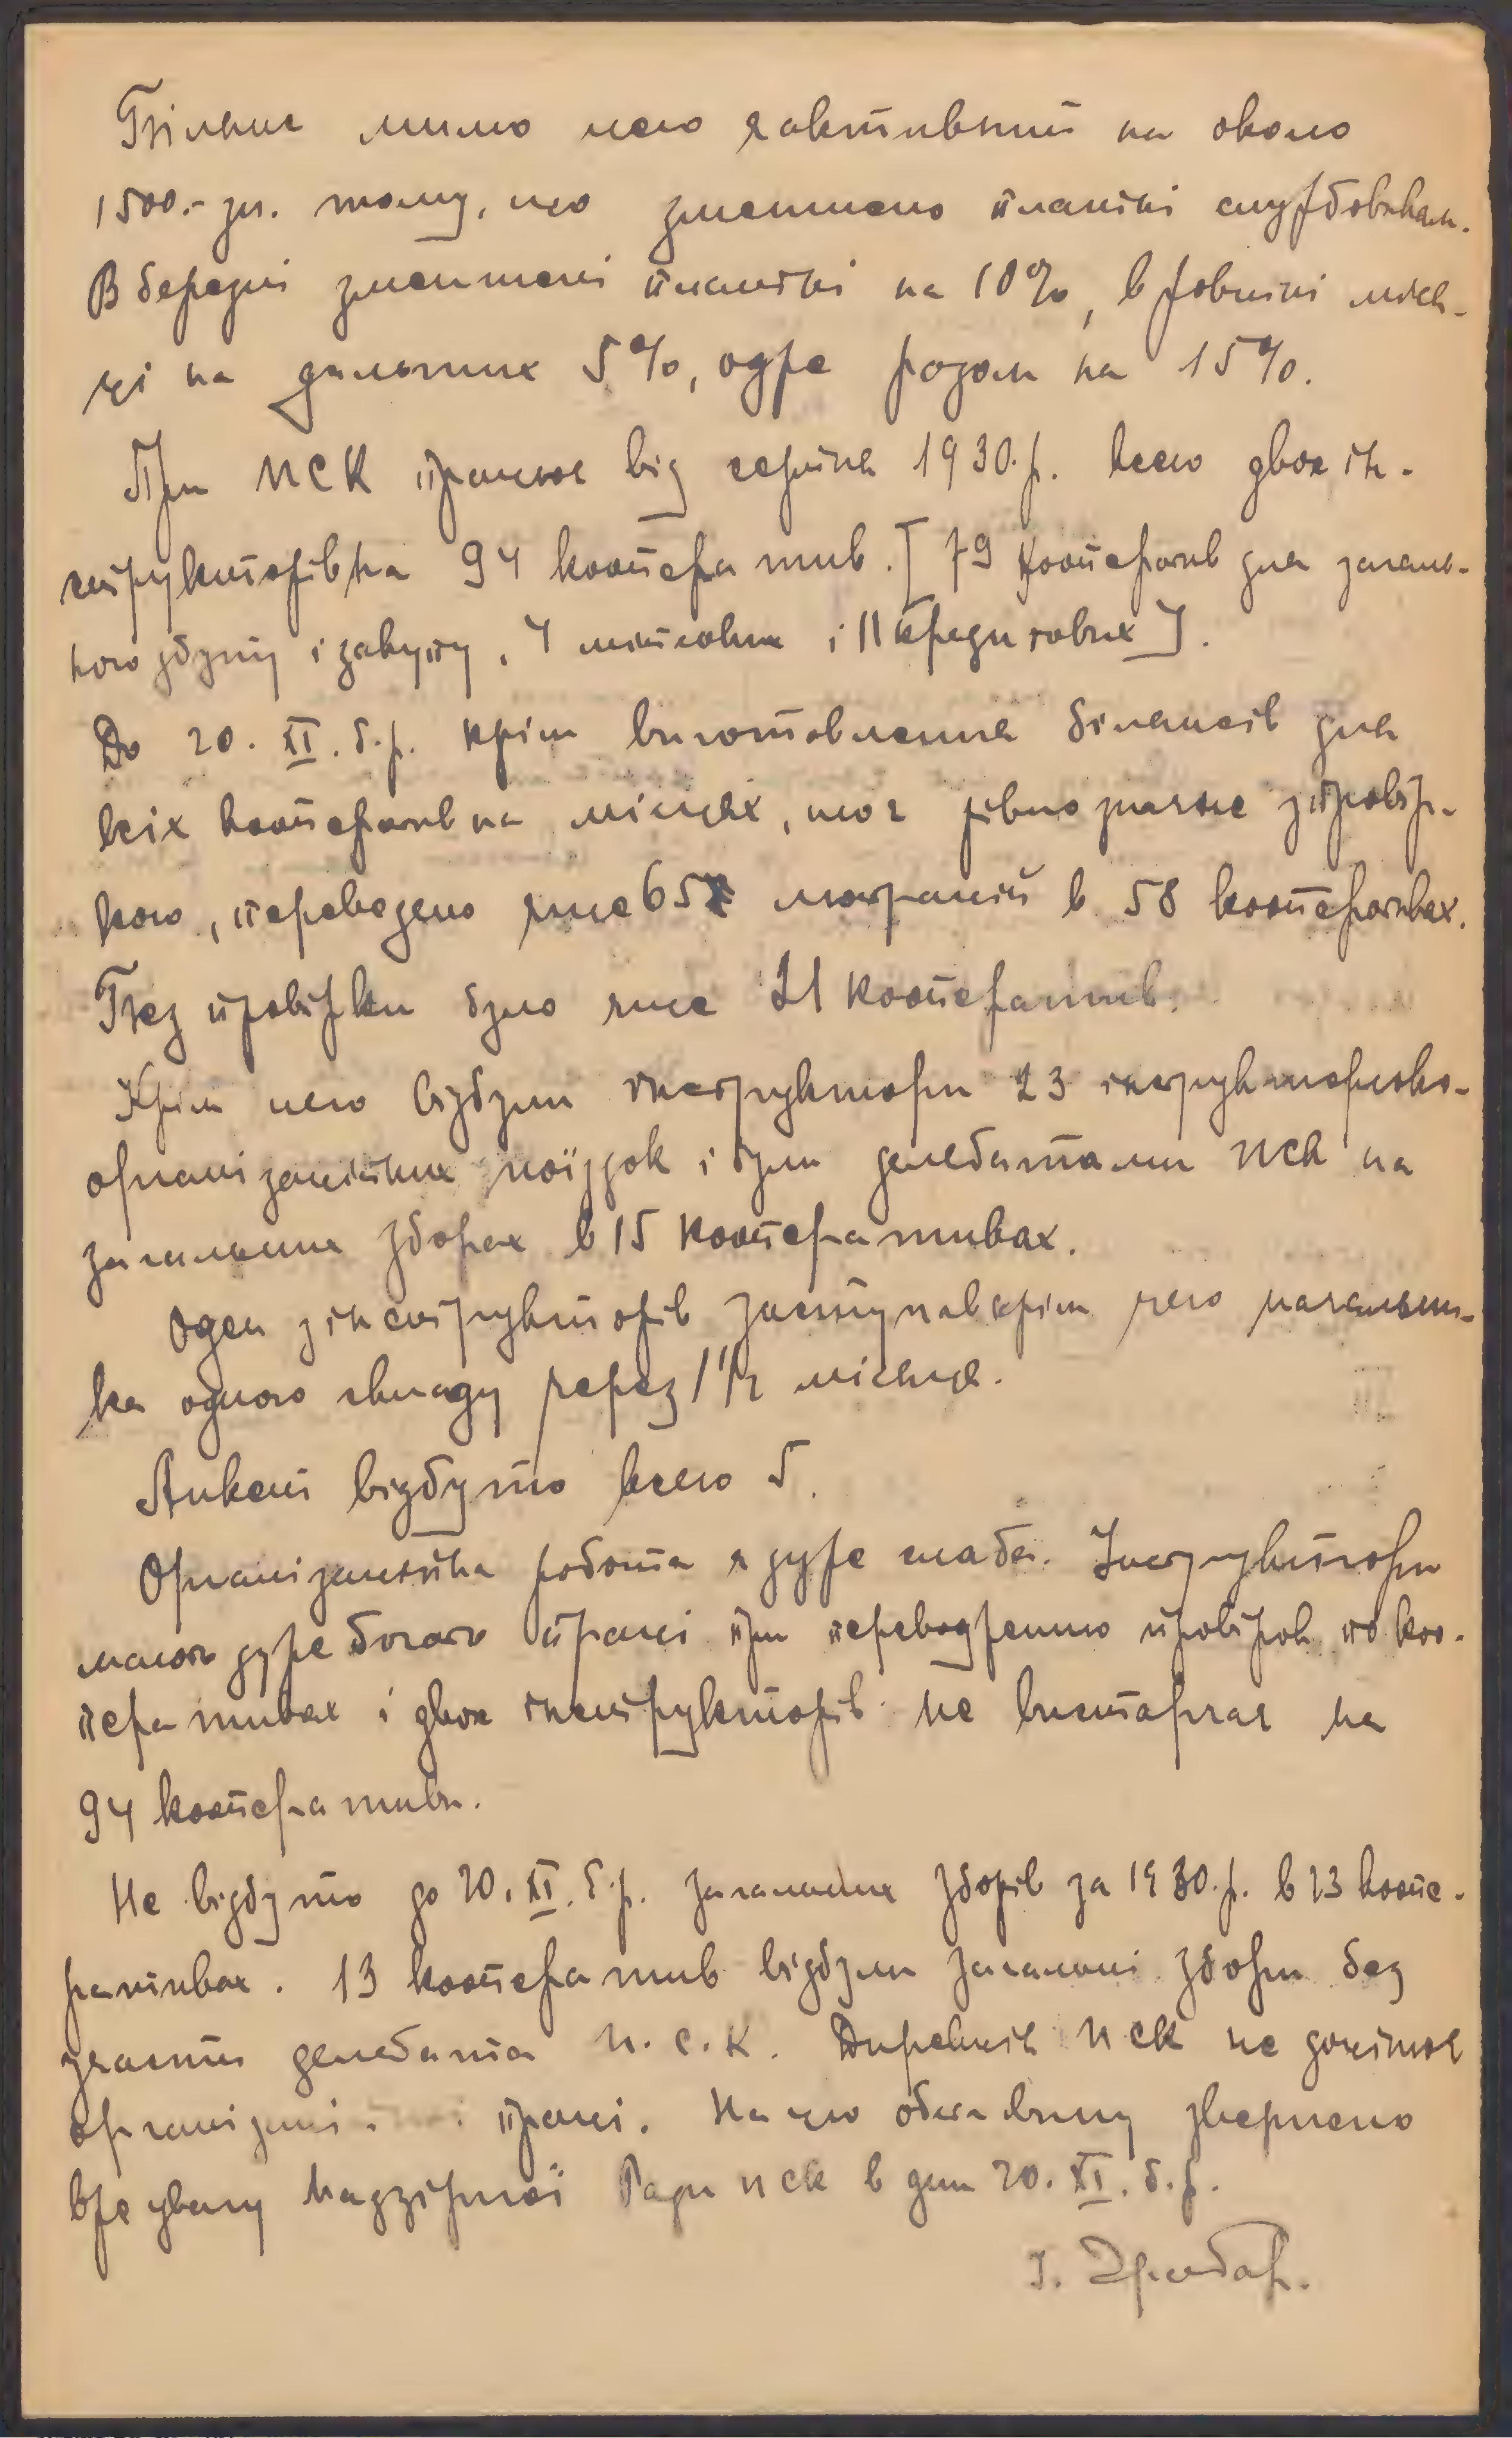 Білянс мимо цего є активний на около
1500.- зл. тому, що зменшено платні службовикам.
В березні зменшені платні на 10%, в жовтні міся-
ці на дальших 5%, одже разом на 15%.
При ПСК працює від серпня 1930.р. всего двох ін-
структорів на 94 кооператив. [79 кооператив для загаль-
ного збуту і закупу, 4 молочних і 11 кредитових].
До 20. XI. б.р. крім виготовлення білянсів для
всіх кооператив на місцях, що є рівнозначне з провір-
кою, переведено лише 65 люстрацій в 58 кооперативах.
Без провірки було лише 21 кооператив.
Крім цего відбули інструктори 23 інструкторсько-
організаційних поїздок і були делегатами ПСК на
загальних зборах в 15 кооперативах.
Один з інструкторів заступав крім цего начальни-
ка одного складу через 1 1/2 місяця.
Анкети відбуто всего 5.
Організаційна робота є дуже слаба. Інструктори
мають дуже богато праці при переводженню провірок по коо-
перативах і двох інструкторів не вистарчає на
94 кооператив.
Не відбуто до 20. XI. б.р. загальних зборів за 1930.р. в 23 коопе-
ративах. 13 кооператив відбули загальні збори без
участи делегата П.С.К. Дирекція ПСК не доцінює
організац. праці. На цю обставину звернено
вже увагу Надзірної Ради ПСК в дни 20. XI. б.р.